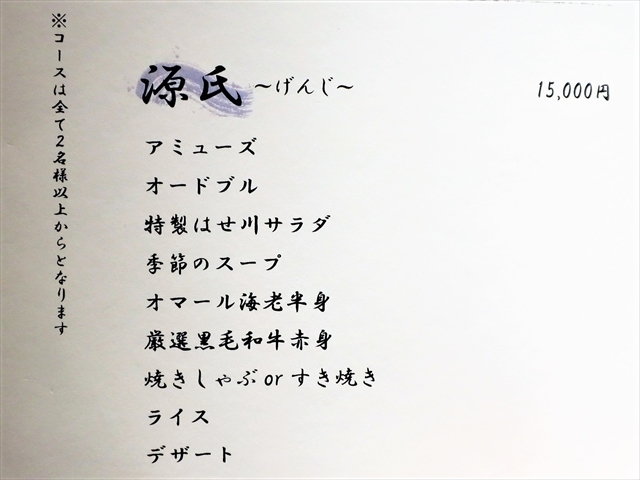 ※コースは全て2名様以上からとなります
源氏 ～げんじ～ 15,000円
アミューズ
オードブル
特製はせ川サラダ
季節のスープ
オマール海老半身
厳選黒毛和牛赤身
焼きしゃぶorすき焼き
ライス
デザート